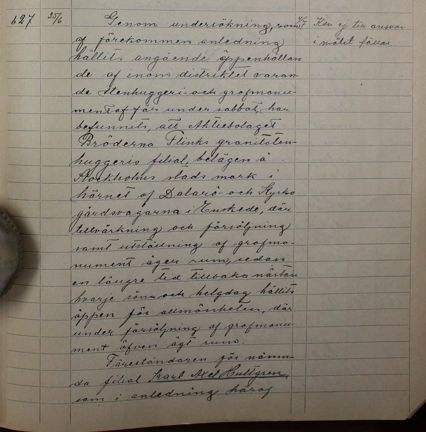 627 25/6 Genom undersökning, som
af förekommen anledning
hållits angående öppenhållan
de af inom distriktet varan-
de stenhuggeri- och grafmonu-
ment af får under sabbat, har
befunnits, att Aktiebolaget
Bröderna Flinks granitsten-
huggeris filial, belägen å
Stockholms stads mark i
hörnet af Dalarö- och Kyrko
gårdsvägarna i Enskede, där
tillvärkning och försäljning
samt utställning af grafmo-
nument äger rum, sedan
en längre tid tillbaka nästan
hvarje sön- och helgdag hållits
öppen för allmänheten, där
under försäljning af grafmonu-
ment äfven ägt rum.
Föreståndaren för nämn-
da filial Karl Axel Hultgren,
som i anledning häraf
Kan ej till ansvar
i målet fällas